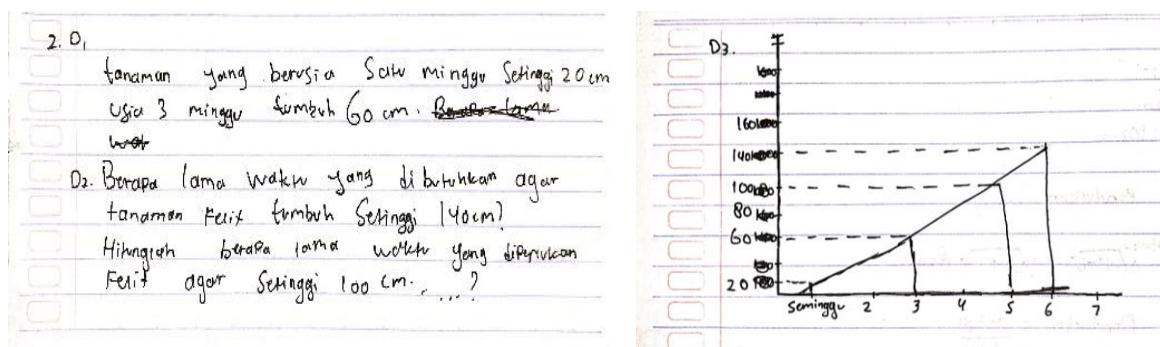 2. D1
tanaman yang berusia Satu minggu Setinggi 20 cm
Usia 3 minggu tumbuh 60 cm. Berapa lama
D2. Berapa lama waktu yang dibutuhkan agar
tanaman Felix tumbuh Setinggi 140cm?
Hitunglah berapa lama waktu yang diperlukan
Felix agar Setinggi 100 cm.....?
D3.
160
140
100
80
60
20
Seminggu 2 3 4 5 6 7